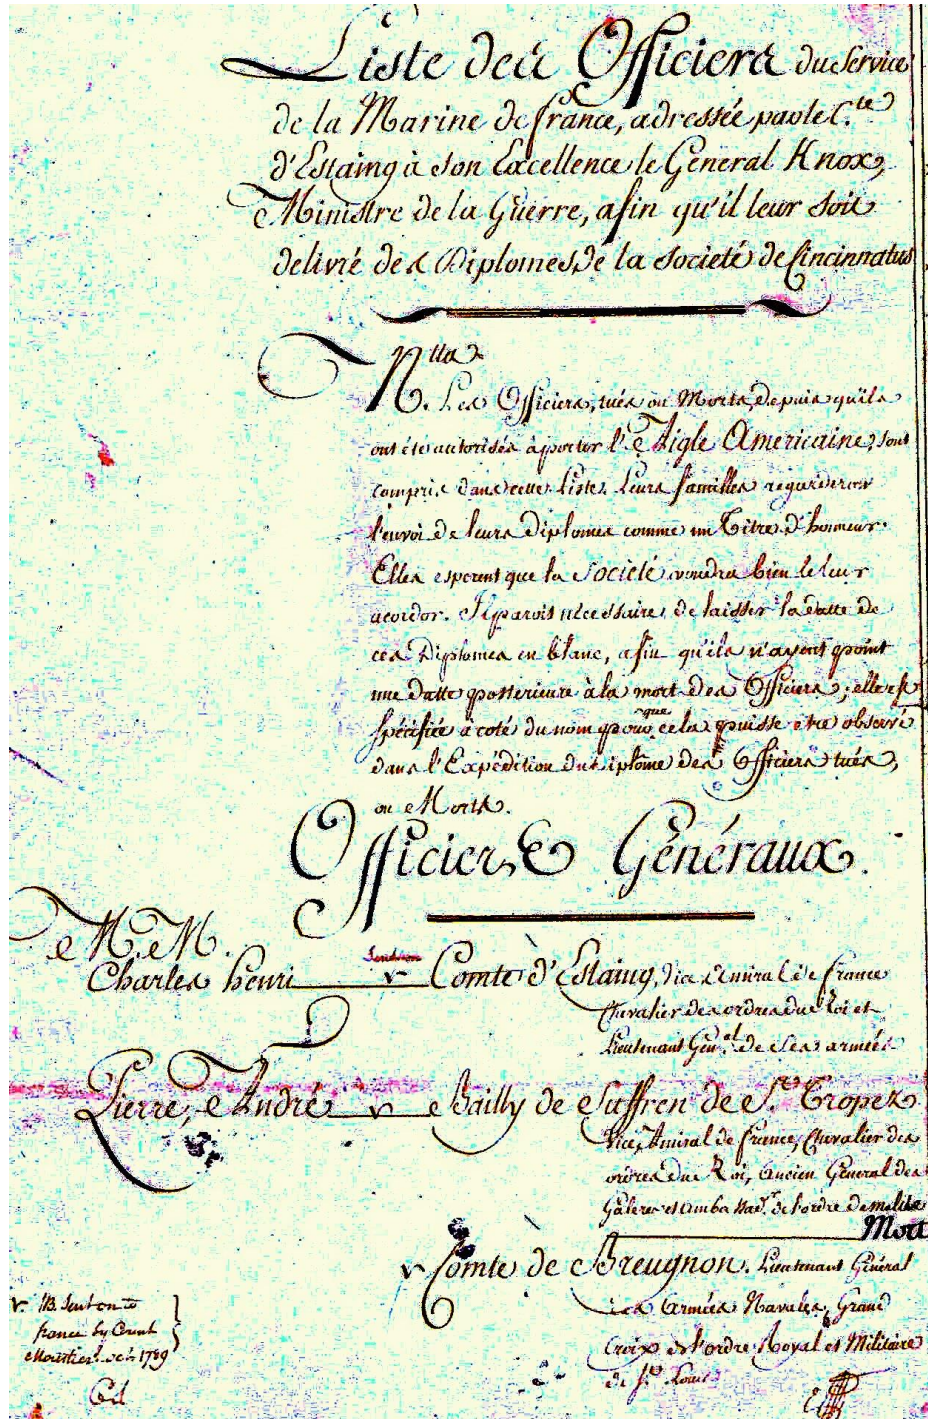 Liste des Officiers du Service
de la Marine de france, adressée par le C.te
d'Estaing à son Excellence le Général Knox,
Ministre de la Guerre, afin qu'il leur soit
delivré des Diplomes de la Societé de Cincinnatus
N.tta
Les Officiers, tués ou Morts, depuis qu'ils
ont été autorisés à porter l'Aigle Americaine, sont
compris dans cette Liste, Leurs familles regarderont
l'envoi de leurs Diplomes comme un Titre d'honneur.
Elles esperent que la Societé voudra bien le leur
acordor. Il parois nécessaire de laisser la datte de
ces Diplomes en blanc, afin qu'ils n'ayent point
une datte posterieure à la mort des Officiers; elle est
spécifiée à coté du nom pour que cela puisse etre observé
dans l'Expédition du diplome des Officiers tués,
ou Morts.
Officiers Généraux.
M.M.
Charles henri v Comte d'Estaing, Vice Amiral de france
Chevalier des ordres du Roi et
Lieutenant Gén.al de Ses armées
Pierre, André v Bailly de Suffren de S.t Tropez
Vice Amiral de france, Chevalier des
ordres du Roi, ancien General des
Galeres et ambassad.r de l'ordre de malthe
Mort
v Comte de Breugnon. Lieutenant Général
des Armées Navales, Grand
Croix de l'ordre Royal et Militaire
de S.t Louis
v. NB Sent on to
france by Count
Moustier 1789